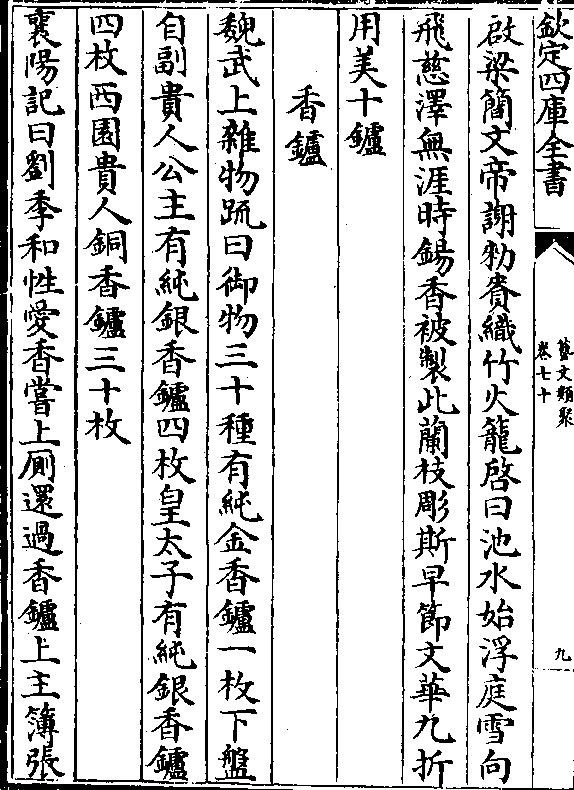 欽定四庫全書
藝文類聚
卷七十
九
啟梁簡文帝謝勑賚織竹火籠啓曰池水始浮庭雪向
飛慈澤無涯時錫香被製此蘭枝彫斯早節文華九折
用美十鑪
香鑪
魏武上雜物疏曰御物三十種有純金香鑪一枚下盤
自副貴人公主有純銀香鑪四枚皇太子有純銀香鑪
四枚西園貴人銅香鑪三十枚
襄陽記曰劉季和性愛香嘗上厠還過香鑪上主簿張